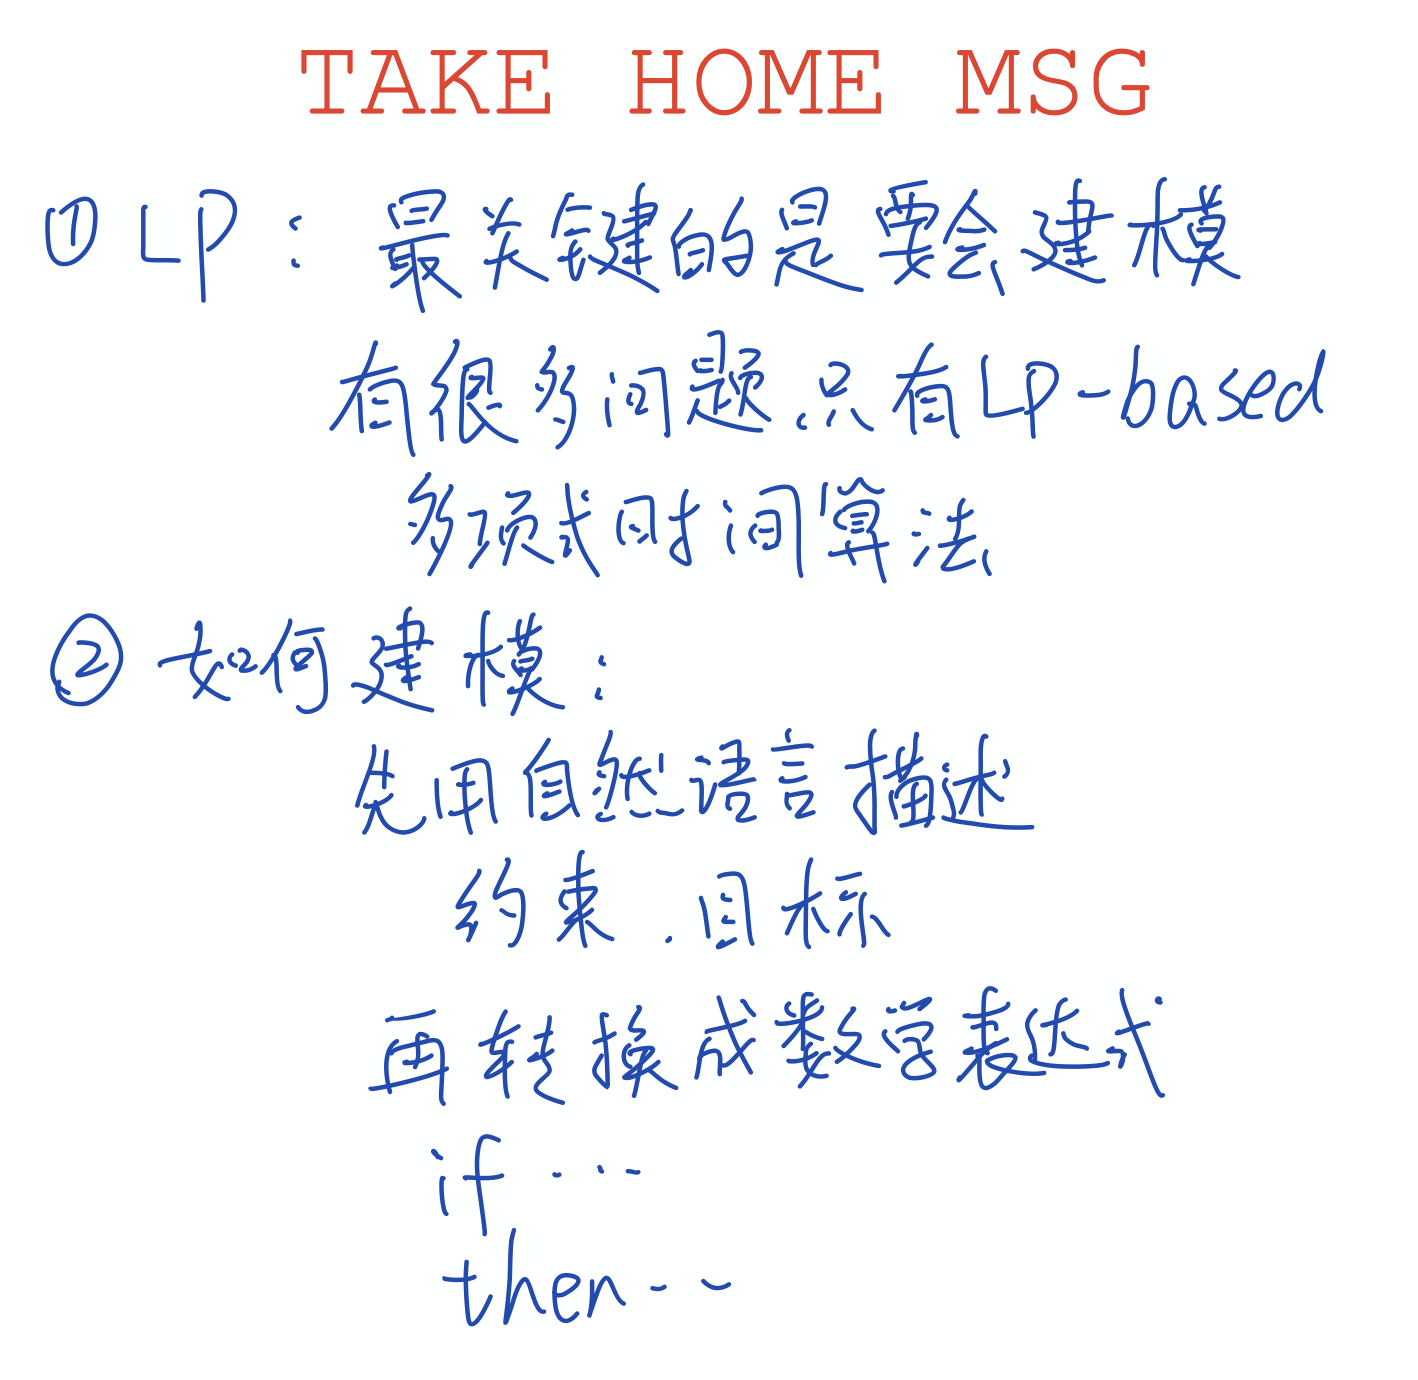 TAKE HOME MSG
① LP：最关键的是要会建模
有很多问题.只有LP-based
多项式时间算法
② 如何建模：
先用自然语言描述
约束.目标
再转换成数学表达式
if ...
then...